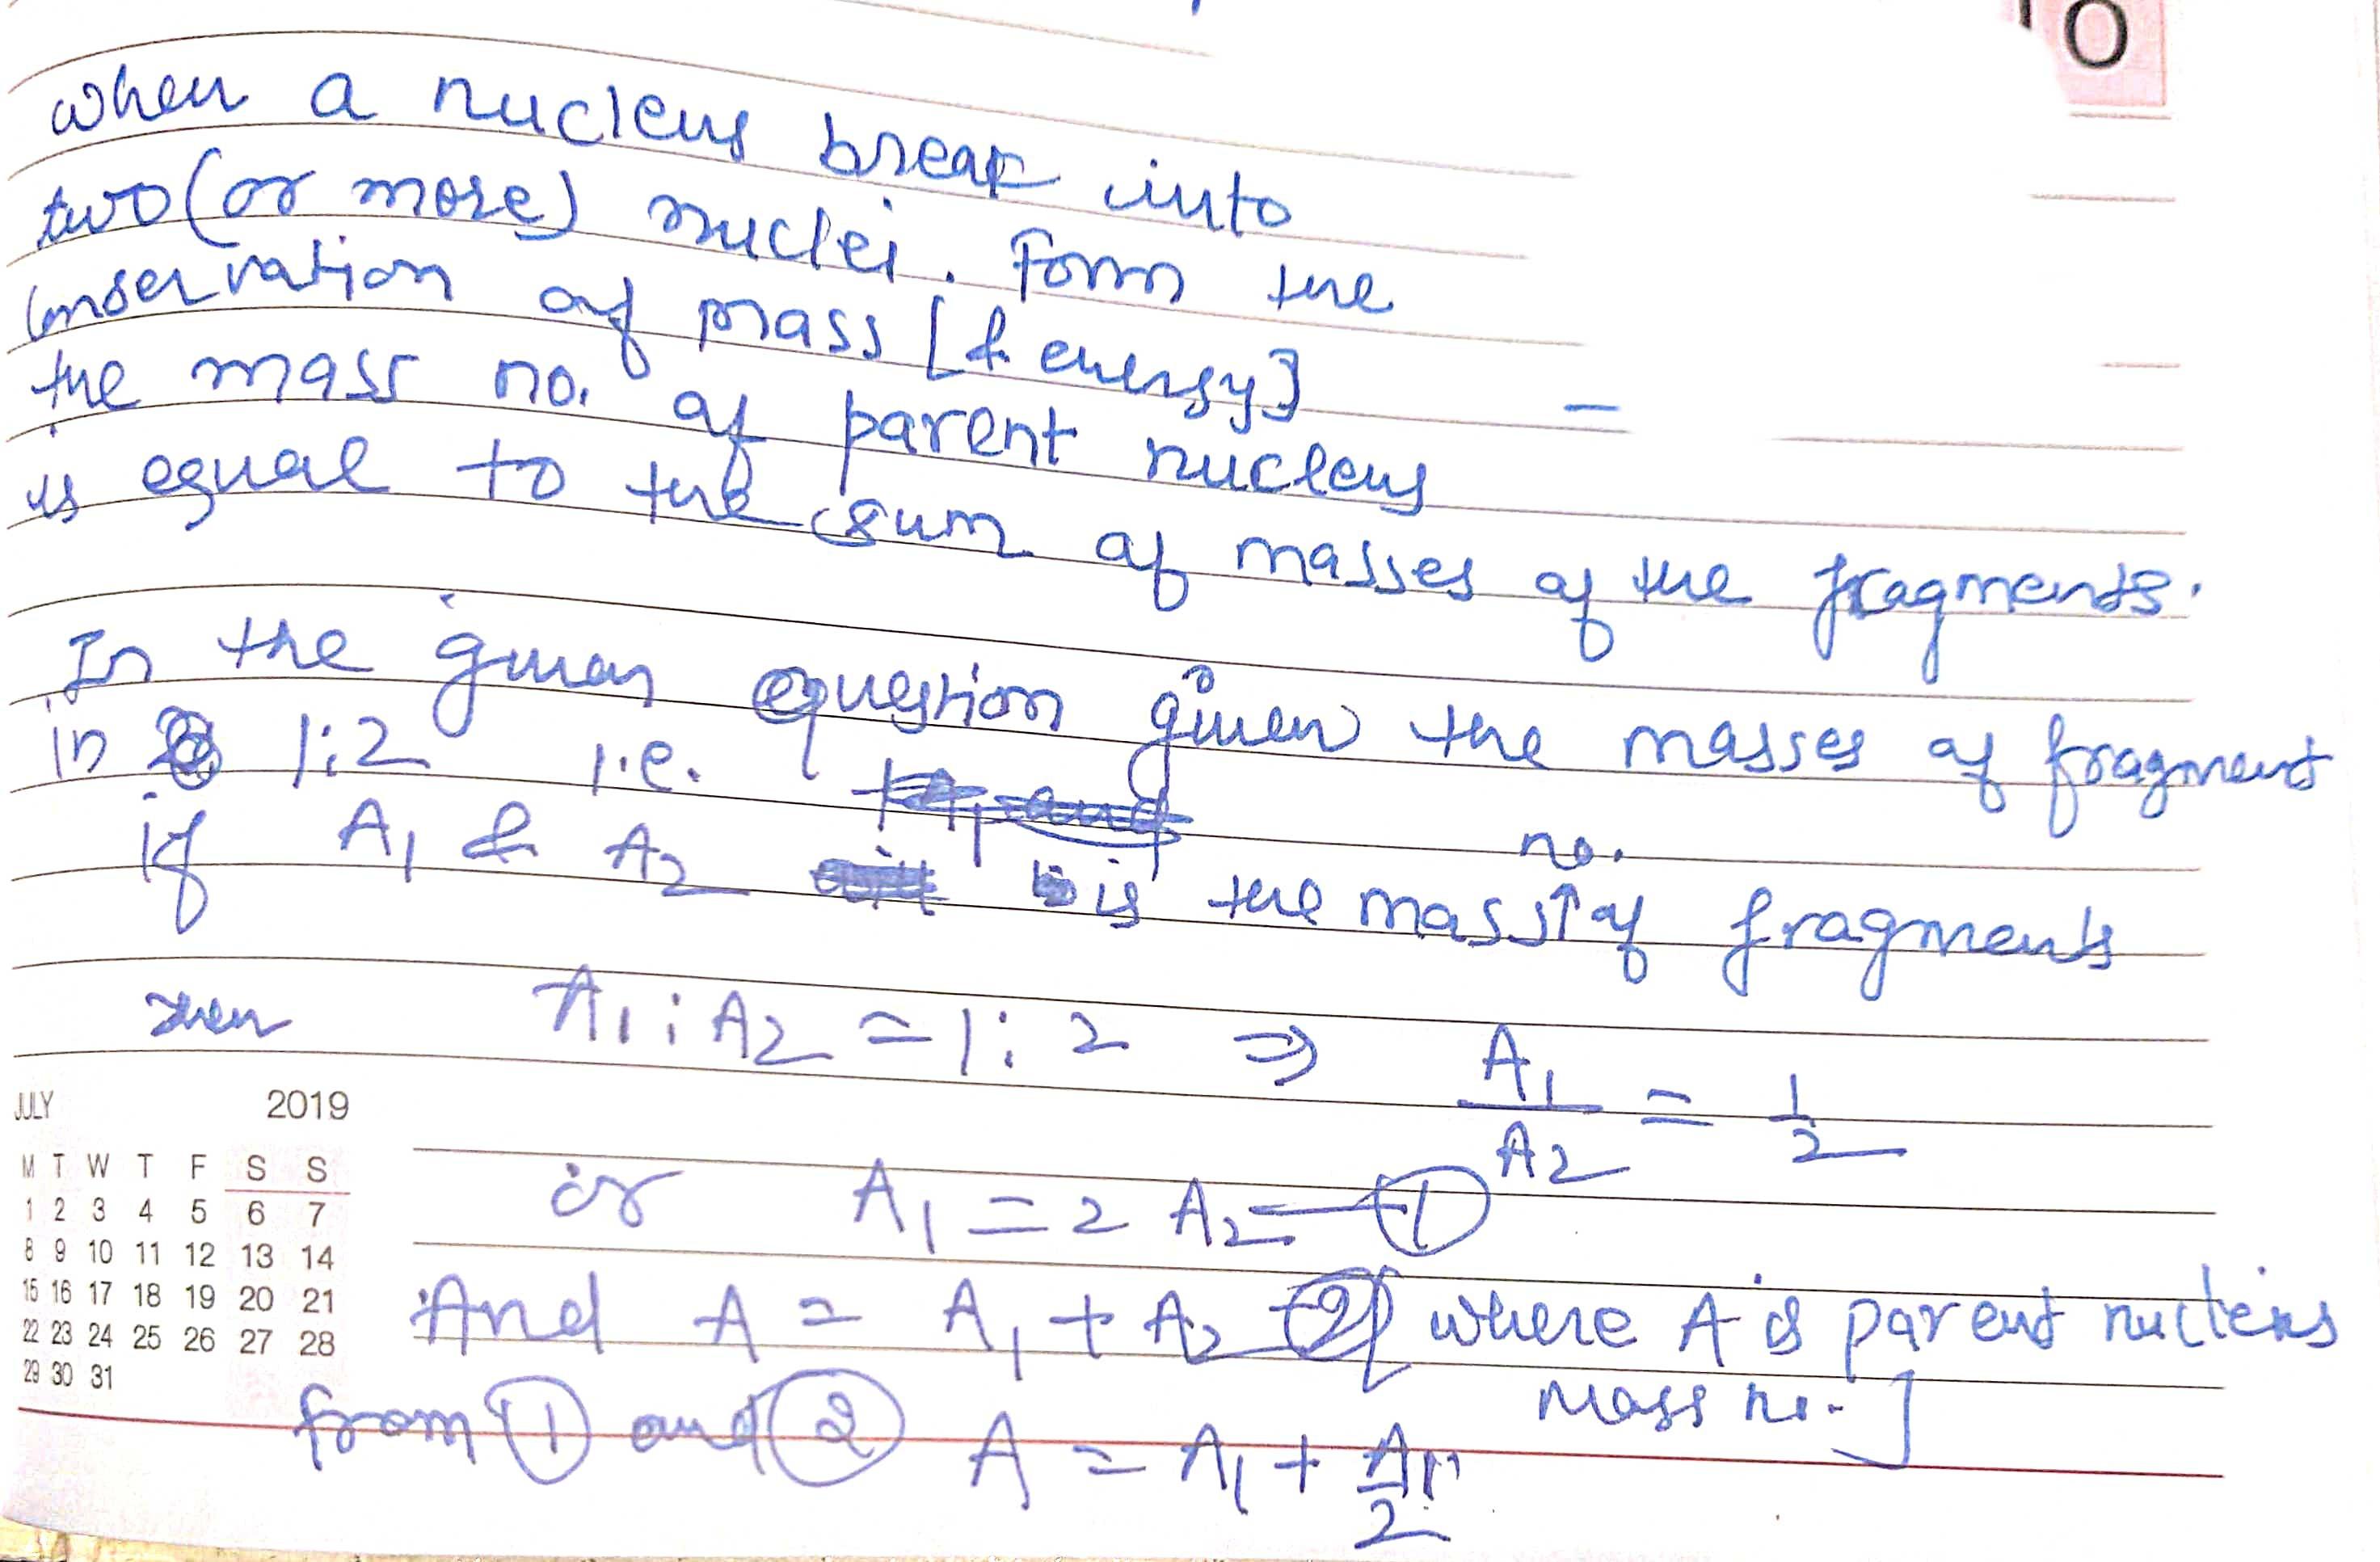 0
when a nucleus break into
two (or more) nuclei. Form the
Conservation of mass [& energy]
the mass no. of parent nucleus
is equal to the sum of masses of the fragments.
In the given question given the masses of fragment
in 1:2 i.e.
no.
if A₁ & A₂ is the mass↑ of fragments
then A₁ : A₂ = 1 : 2 ⇒ A₁/A₂ = 1/2
JULY 2019
M T W T F S S
1 2 3 4 5 6 7
8 9 10 11 12 13 14
15 16 17 18 19 20 21
22 23 24 25 26 27 28
29 30 31
or A₁ = 2 A₂ — ①
And A = A₁ + A₂ — ② [where A is parent nucleus
Mass no.]
from ① and ② A = A₁ + A₁/2